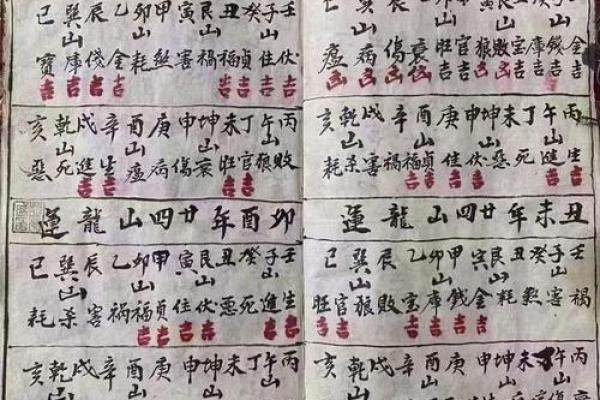 金錢庫宝敗狼官旺衰傷病瘟
丙午丁未坤申庚酉辛戌乾亥
山山山山
生進死惡伏佳貞福禍害杀耗
吉吉吉吉吉吉
丑未年廿四山龍運
壬子癸丑艮寅甲卯乙辰巽巳
山山山山
禍害煞耗金錢庫宝敗狼官旺
吉吉吉吉吉吉
丙午丁未坤申庚酉辛戌乾亥
山山山山
壬子癸丑艮寅甲卯乙辰巽巳
山山山山
伏住貞福禍害煞耗金錢庫寶
吉吉吉吉吉吉吉吉
丙午丁未坤申庚酉辛戌乾亥
山山山山
敗狼官旺衰傷病瘟生進死惡
吉吉吉吉
卯酉年廿四山龍運
壬子癸丑艮寅甲卯乙辰巽巳
山山山山
生進死惡伏住貞福禍害杀耗
吉吉吉吉吉吉
丙午丁未坤申庚酉辛戌乾亥
山山山山